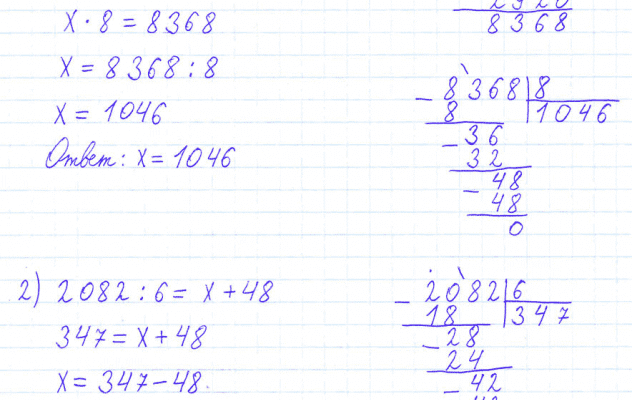 x · 8 = 8368
x = 8368 : 8
x = 1046
Ответ: x = 1046
8368
− 8368 | 8
8 | 1046
− 36
32
− 48
48
0
2) 2082 : 6 = x + 48
347 = x + 48
x = 347 − 48
− 2082 | 6
18 | 347
− 28
24
− 42